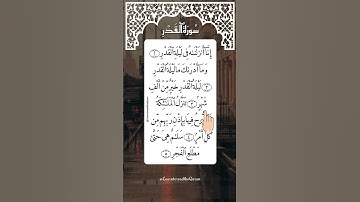 سورة القدر
إِنَّا أَنزَلْنَٰهُ فِى لَيْلَةِ ٱلْقَدْرِ ١
وَمَآ أَدْرَىٰكَ مَا لَيْلَةُ ٱلْقَدْرِ
٢ لَيْلَةُ ٱلْقَدْرِ خَيْرٌ مِّنْ أَلْفِ
شَهْرٍ ٣ تَنَزَّلُ ٱلْمَلَٰٓئِكَةُ
وَٱلرُّوحُ فِيهَا بِإِذْنِ رَبِّهِم مِّن
كُلِّ أَمْرٍ ٤ سَلَٰمٌ هِىَ حَتَّىٰ
مَطْلَعِ ٱلْفَجْرِ ٥